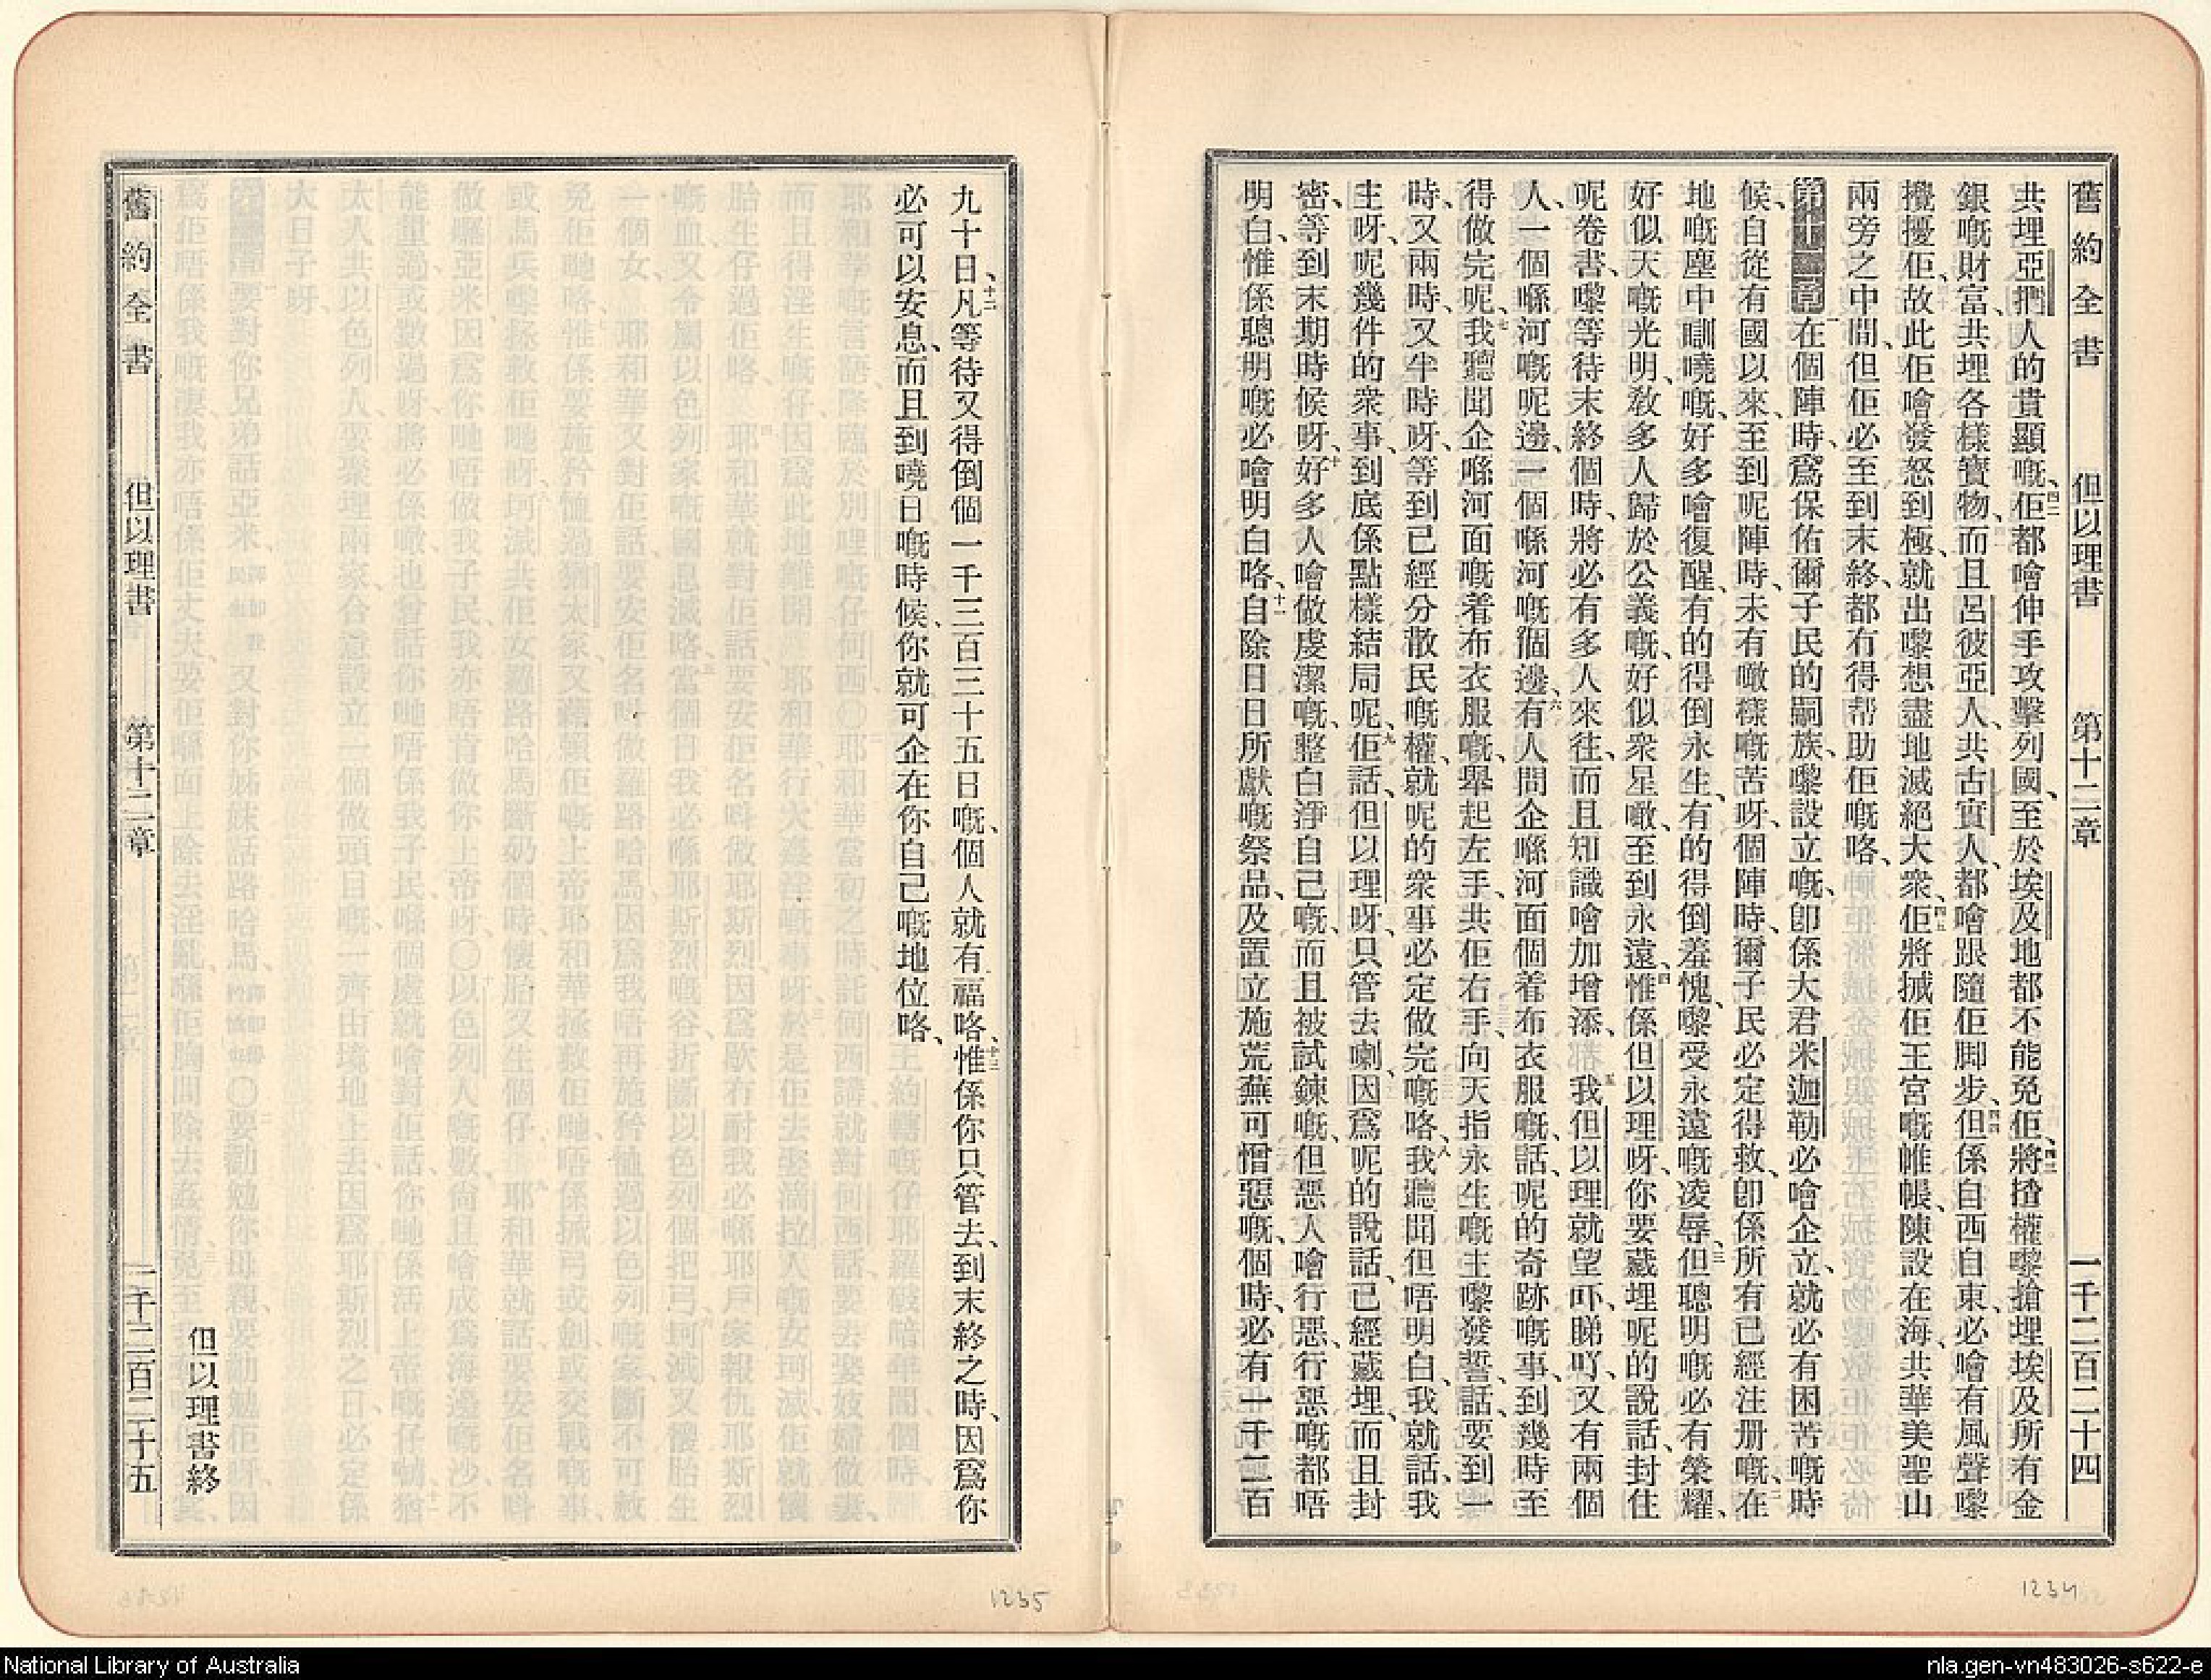 舊約全書　但以理書　第十二章　一千二百二十四
共埋亞捫人的貴顯嘅、四二佢都噲伸手攻擊列國、至於埃及地都不能免佢、四三將揸權嚟搶埋埃及所有金
銀嘅財富、共埋各樣寶物、而且呂彼亞人、共古實人、都噲跟隨佢脚步、四四但係自西自東、必噲有風聲嚟
攪擾佢、故此佢噲發怒到極、就出嚟想盡地滅絕大衆、四五佢將搣佢王宮嘅帷帳、陳設在海、共華美聖山
兩旁之中間、但佢必至到末終、都冇得帮助佢嘅咯、
第十二章一在個陣時、爲保佑爾子民的嗣族、嚟設立嘅、卽係大君米迦勒必噲企立、就必有困苦嘅時
候、自從有國以來、至到呢陣時、未有噉樣嘅苦呀、個陣時、爾子民必定得救、卽係所有已經注册嘅、二在
地嘅塵中瞓嘵嘅、好多噲復醒、有的得倒永生、有的得倒羞愧、嚟受永遠嘅凌辱、三但聰明嘅必有榮耀、
好似天嘅光明、敎多人歸於公義嘅、好似衆星噉、至到永遠、四惟係但以理呀、你要藏埋呢的說話、封住
呢卷書、嚟等待末終個時、將必有多人來往、而且知識噲加增添、五我但以理就望吓睇吓、又有兩個
人、一個喺河嘅呢邊、一個喺河嘅個邊、六有人問企喺河面個着布衣服嘅、話、呢的奇跡嘅事、到幾時至
得做完呢、七我聽聞企喺河面嘅着布衣服嘅、舉起左手、共佢右手、向天指永生嘅主嚟發誓、話、要到一
時、又兩時、又半時呀、等到已經分散民嘅權、就呢的衆事必定做完嘅咯、八我聽聞但唔明白、我就話、我
主呀、呢幾件的衆事、到底係點樣結局呢、九佢話、但以理呀、只管去喇、因爲呢的說話、已經藏埋、而且封
密、等到末期時候呀、十好多人噲做虔潔嘅、整白淨自己嘅、而且被試鍊嘅、但惡人噲行惡、行惡嘅都唔
明白、惟係聰明嘅必噲明白咯、十一自除日日所獻嘅祭品、及置立施荒蕪可憎惡嘅、個時、必有一千二百
1234
九十日、十二凡等待又得倒個一千三百三十五日嘅、個人就有福咯、十三惟係你只管去、到末終之時、因爲你
必可以安息、而且到嘵日嘅時候、你就可企在你自己嘅地位咯、
但以理書終
舊約全書　但以理書　第十二章　一千二百二十五
1235
National Library of Australia
nla.gen-vn483026-s622-e